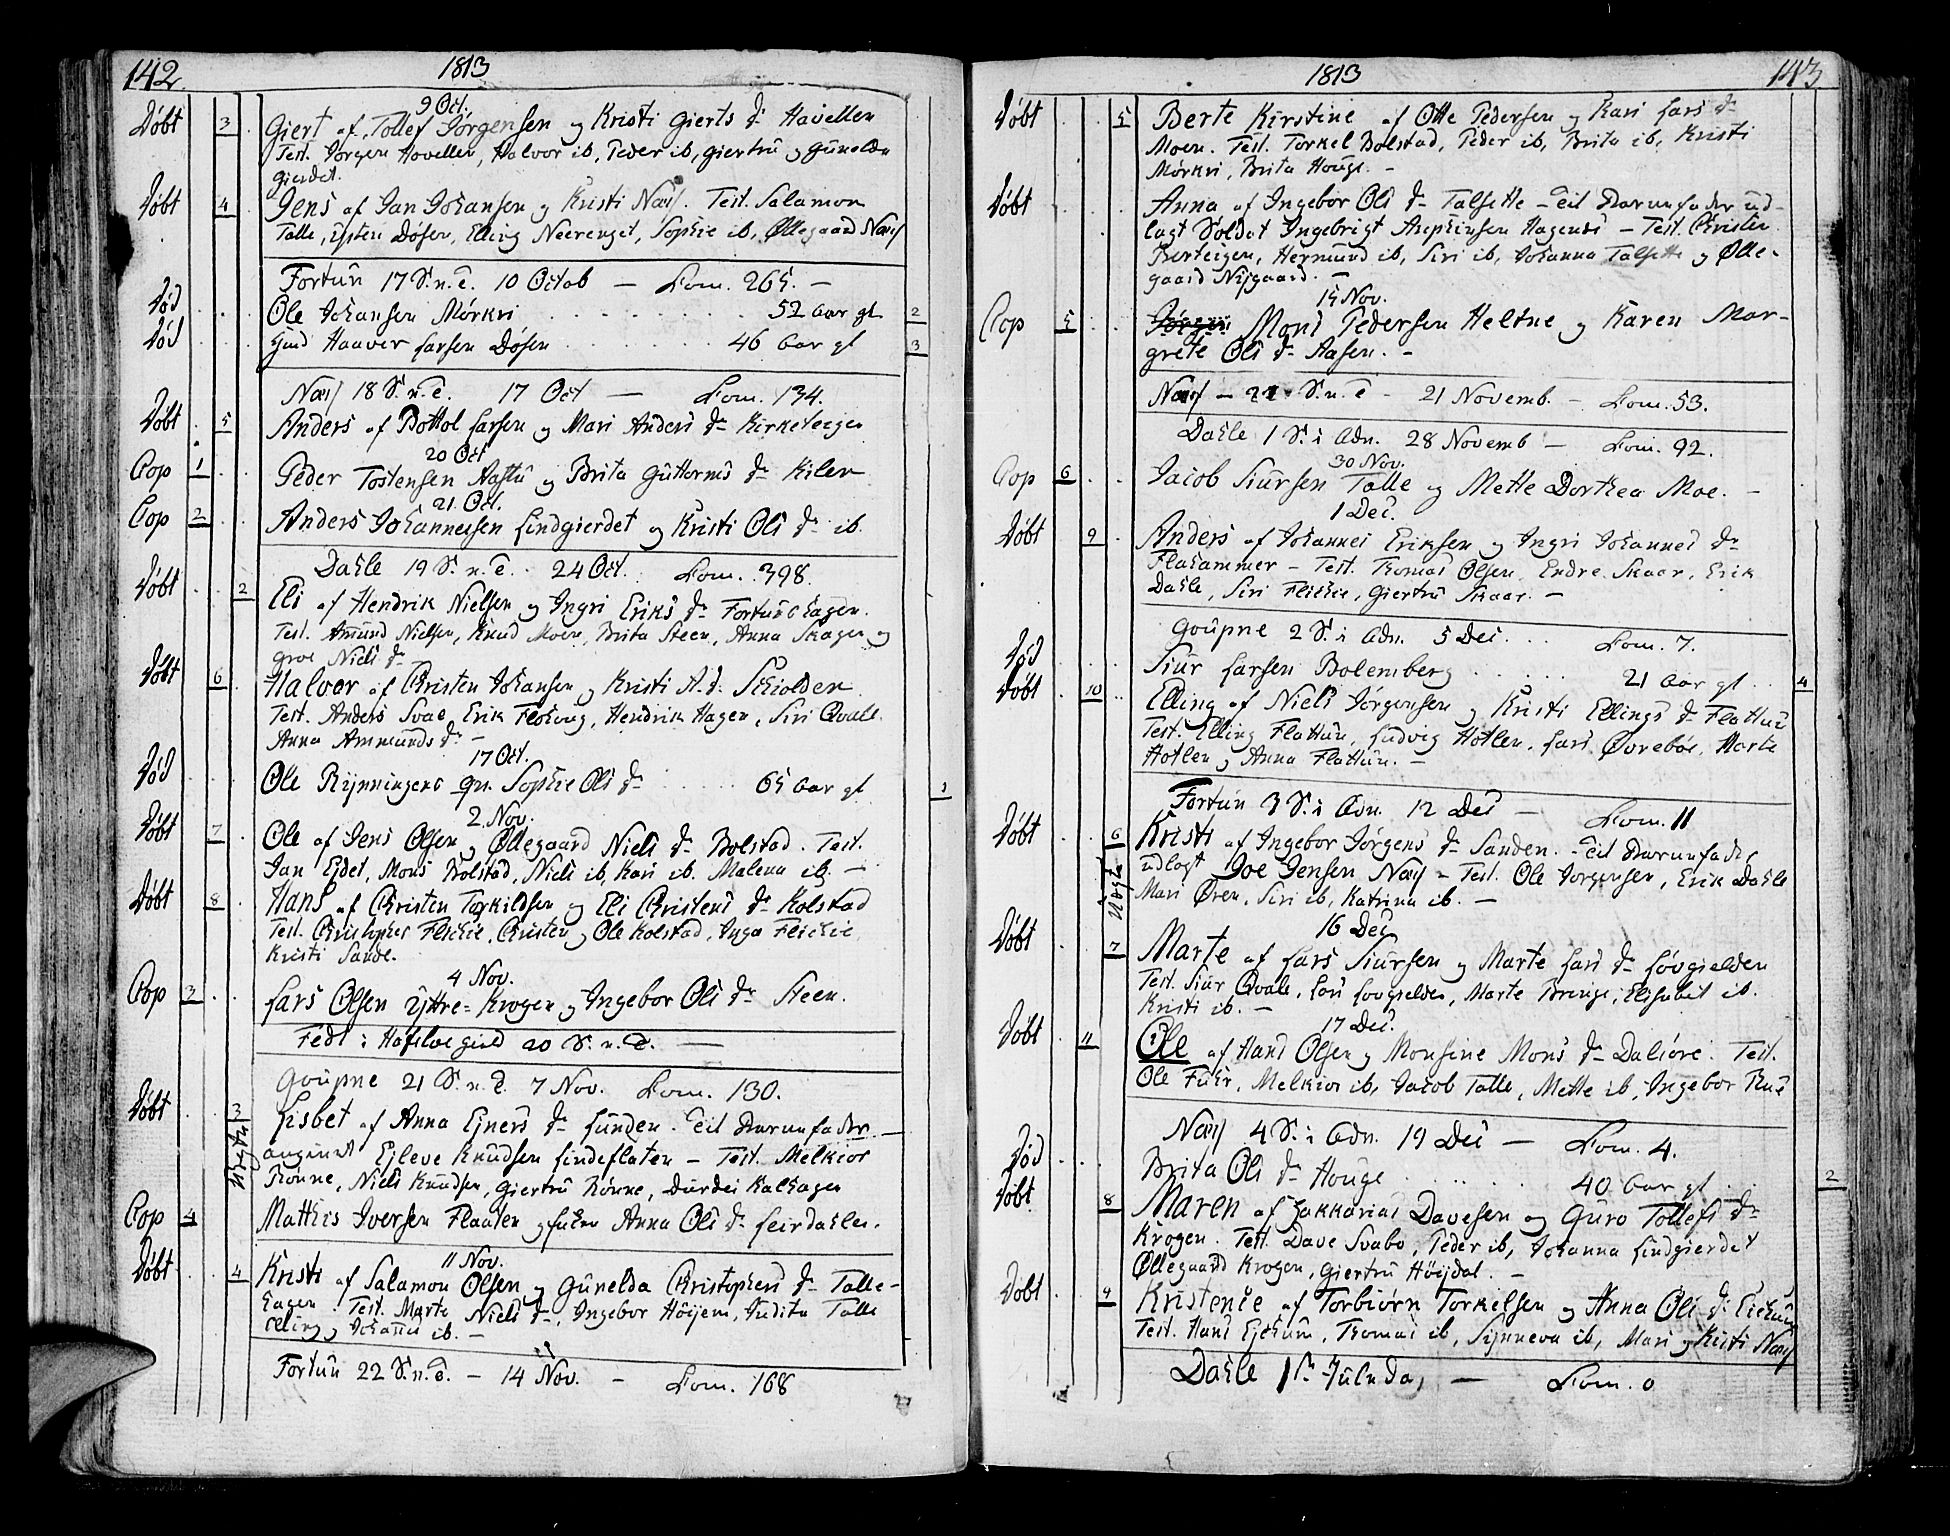 142. 1813
9 Oct.
Døbt 3 Giert af Tollef Jørgensen og Kristi Gierts Dr Havellen
Test. Jørgen Hovellen, Halvor ib, Peder ib, Giertrü og Günelda
Gierdet.
Døbt 4 Jens af Jan Johansen og Kristi Næs. Test. Salamon
Talle, Østen Døsen, Elling Neerenget, Sophie ib, Øllegaard Næs
Fortün 17 S. n. T. 10 Octob — Com. 265. —
Død Ole Johansen Mørkri 52 Aar gl 2
Død Haaver Larsen Døsen 46 Aar gl 3
Næs 18 S. n. T. 17 Oct — Com. 134.
Døbt 5 Anders af Bottol Larsen og Mari Anders Dr Kirketeigen
20 Oct
Cop 1 Peder Tostensen Aastü og Brita Güttorms Dr Kilen
21 Oct.
Cop 2 Anders Johannessen Lindgierdet og Kristi Ols Dr ib.
Dahle 19 S. n. T. 24 Oct. Com. 398.
Døbt 2 Eli af Hendrik Nielsen og Ingri Eriks Dr Fortüns hagen.
Test. Amünd Nielsen, Knud Moen, Brita Steen, Anna Skagen og
Groe Niels Dr
Døbt 6 Halvor af Christen Johansen og Kristi A. Dr Skiolden
Test. Anders Svae, Erik Flohoug, Hendrik Hagen, Siri Qvale
Anna Ammunds Dr —
17 Oct.
Død Ole Rynningens qv. Sophie Ols Dr 65 Aar gl 1
2. Nov.
Døbt 7 Ole af Jens Olsen og Øllegaard Niels Dr Bolstad. Test.
Jan Eidet, Mons Bolstad, Niels ib, Kari ib. Malena ib. —
Døbt 8 Hans af Christen Torkildsen og Eli Christens Dr Kolstad
Test. Christopher Flickie, Christen og Ole Kolstad, Inga Flickie
Kristi Sande.
4 Nov.
Cop 3 Lars Olsen Yttre-Krogen og Ingebor Ols Dr Steen.
Fedt i Hafsloe gield 20 S. n. T. —
Goüpne 21 S. n. T. 7 Nov. Com. 130.
Døbt 3 Lisbet af Anna Ejners Dr Lünden. Til Barnefader
Uægte angivet Ejleve Knüdsen Lindeflaten — Test. Melkior
Rønne, Niels Knudsen, Giertrü Rønne, Dürdei Kalhagen
Cop 4 Mathis Iversen Flaaten og Anna Ols Dr Leirdahlen.
11 Nov.
Døbt 4 Kristi af Salamon Olsen og Günelda Christophers Dr Talle-
hagen. Test. Marta Niels Dr, Ingebor Høijem, Judita Talle
Elling og Johannes ib. —
Fortün 22 S. n. T. — 14 Nov. — Com. 168
1813 143
Døbt 5 Berte Kirstine af Otte Pedersen og Kari Lars Dr
Moen. Test. Torkel Bolstad, Peder ib, Brita ib, Kristi
Mørkri, Brita Houge. —
Døbt Anna af Ingebor Ols Dr Talsette — Til Barnefader ud-
lagt Soldat Ingebrigt Hagenes — Test. Christen
Berteigen, Hermund ib, Siri ib, Johanna Talsette og Ølle-
gaard Nijgaard. —
15 Nov.
Cop 5 Jørgen Mons Pedersen Heltne og Karen Mar-
grete Ols Dr Aasen. —
Næs — 22 S. n. T — 21 Novemb. — Com. 53.
Dahle 1 S. i Adv. 28 Novemb — Com. 92.
30 Nov.
Cop 6 Jacob Siürsen Talle og Mette Dorthea Moe. —
1 Dec.
Døbt 9 Anders af Johannes Eriksen og Ingri Johannes Dr
Flahammer — Test. Thomas Olsen, Endre Skaar, Erik
Dahle, Siri Flickie, Giertrü Skaar. —
Goüpne 2 S. i Adv. 5 Dec. Com. 7.
Død Siür Larsen Bolemberg 21 Aar gl 4
Døbt 10 Elling af Niels Jørgensen og Kristi Ellings Dr Flattün
Test. Elling Flattün, Ludvig Høtlen, Lars Øvrebøe, Marte
Høtlen og Anna Flattün. —
Fortün 3 S. i Adv. 12 Dec — Com. 11
Døbt 6 Kristi af Ingebor Jørgens Dr Sanden. Til Barnefader
Uægte udlagt Joe Jensen Næs — Test. Ole Jørgensen, Erik Dahle
Mari Øren, Siri ib, Katrina ib. —
16 Dec
Døbt 7 Marte af Lars Siürsen og Marte Lars Dr Løvgielden
Test. Siür Qvale, Lars Lovgielden, Marte Brenge, Elisabet ib.
Kristi ib. —
17 Dec.
Døbt 11 Ole af Hans Olsen og Monsine Mons Dr Dalsøre. Test.
Ole Führ, Melkior ib, Jacob Talle, Mette ib, Ingebor
Næs 4 S. i Adv. 19 Dec — Com. 4.
Død Brita Ols Dr Houge 40 Aar gl 2
Døbt 8 Maren af Zakkarias Davesen og Güro Tollefs Dr
Krogen. Test. Dave Svabo, Peder ib, Johanna Lindgierdet
Øllegaard Krogen, Giertrü Høijdal. —
Døbt 9 Kristense af Torbiørn Torkelsen og Anna Ols Dr Eickum
Test. Hans Ejckum, Thomas ib, Synneva ib, Mari og Kisti Næs
Dahle 1ste Juledag — Com. 0